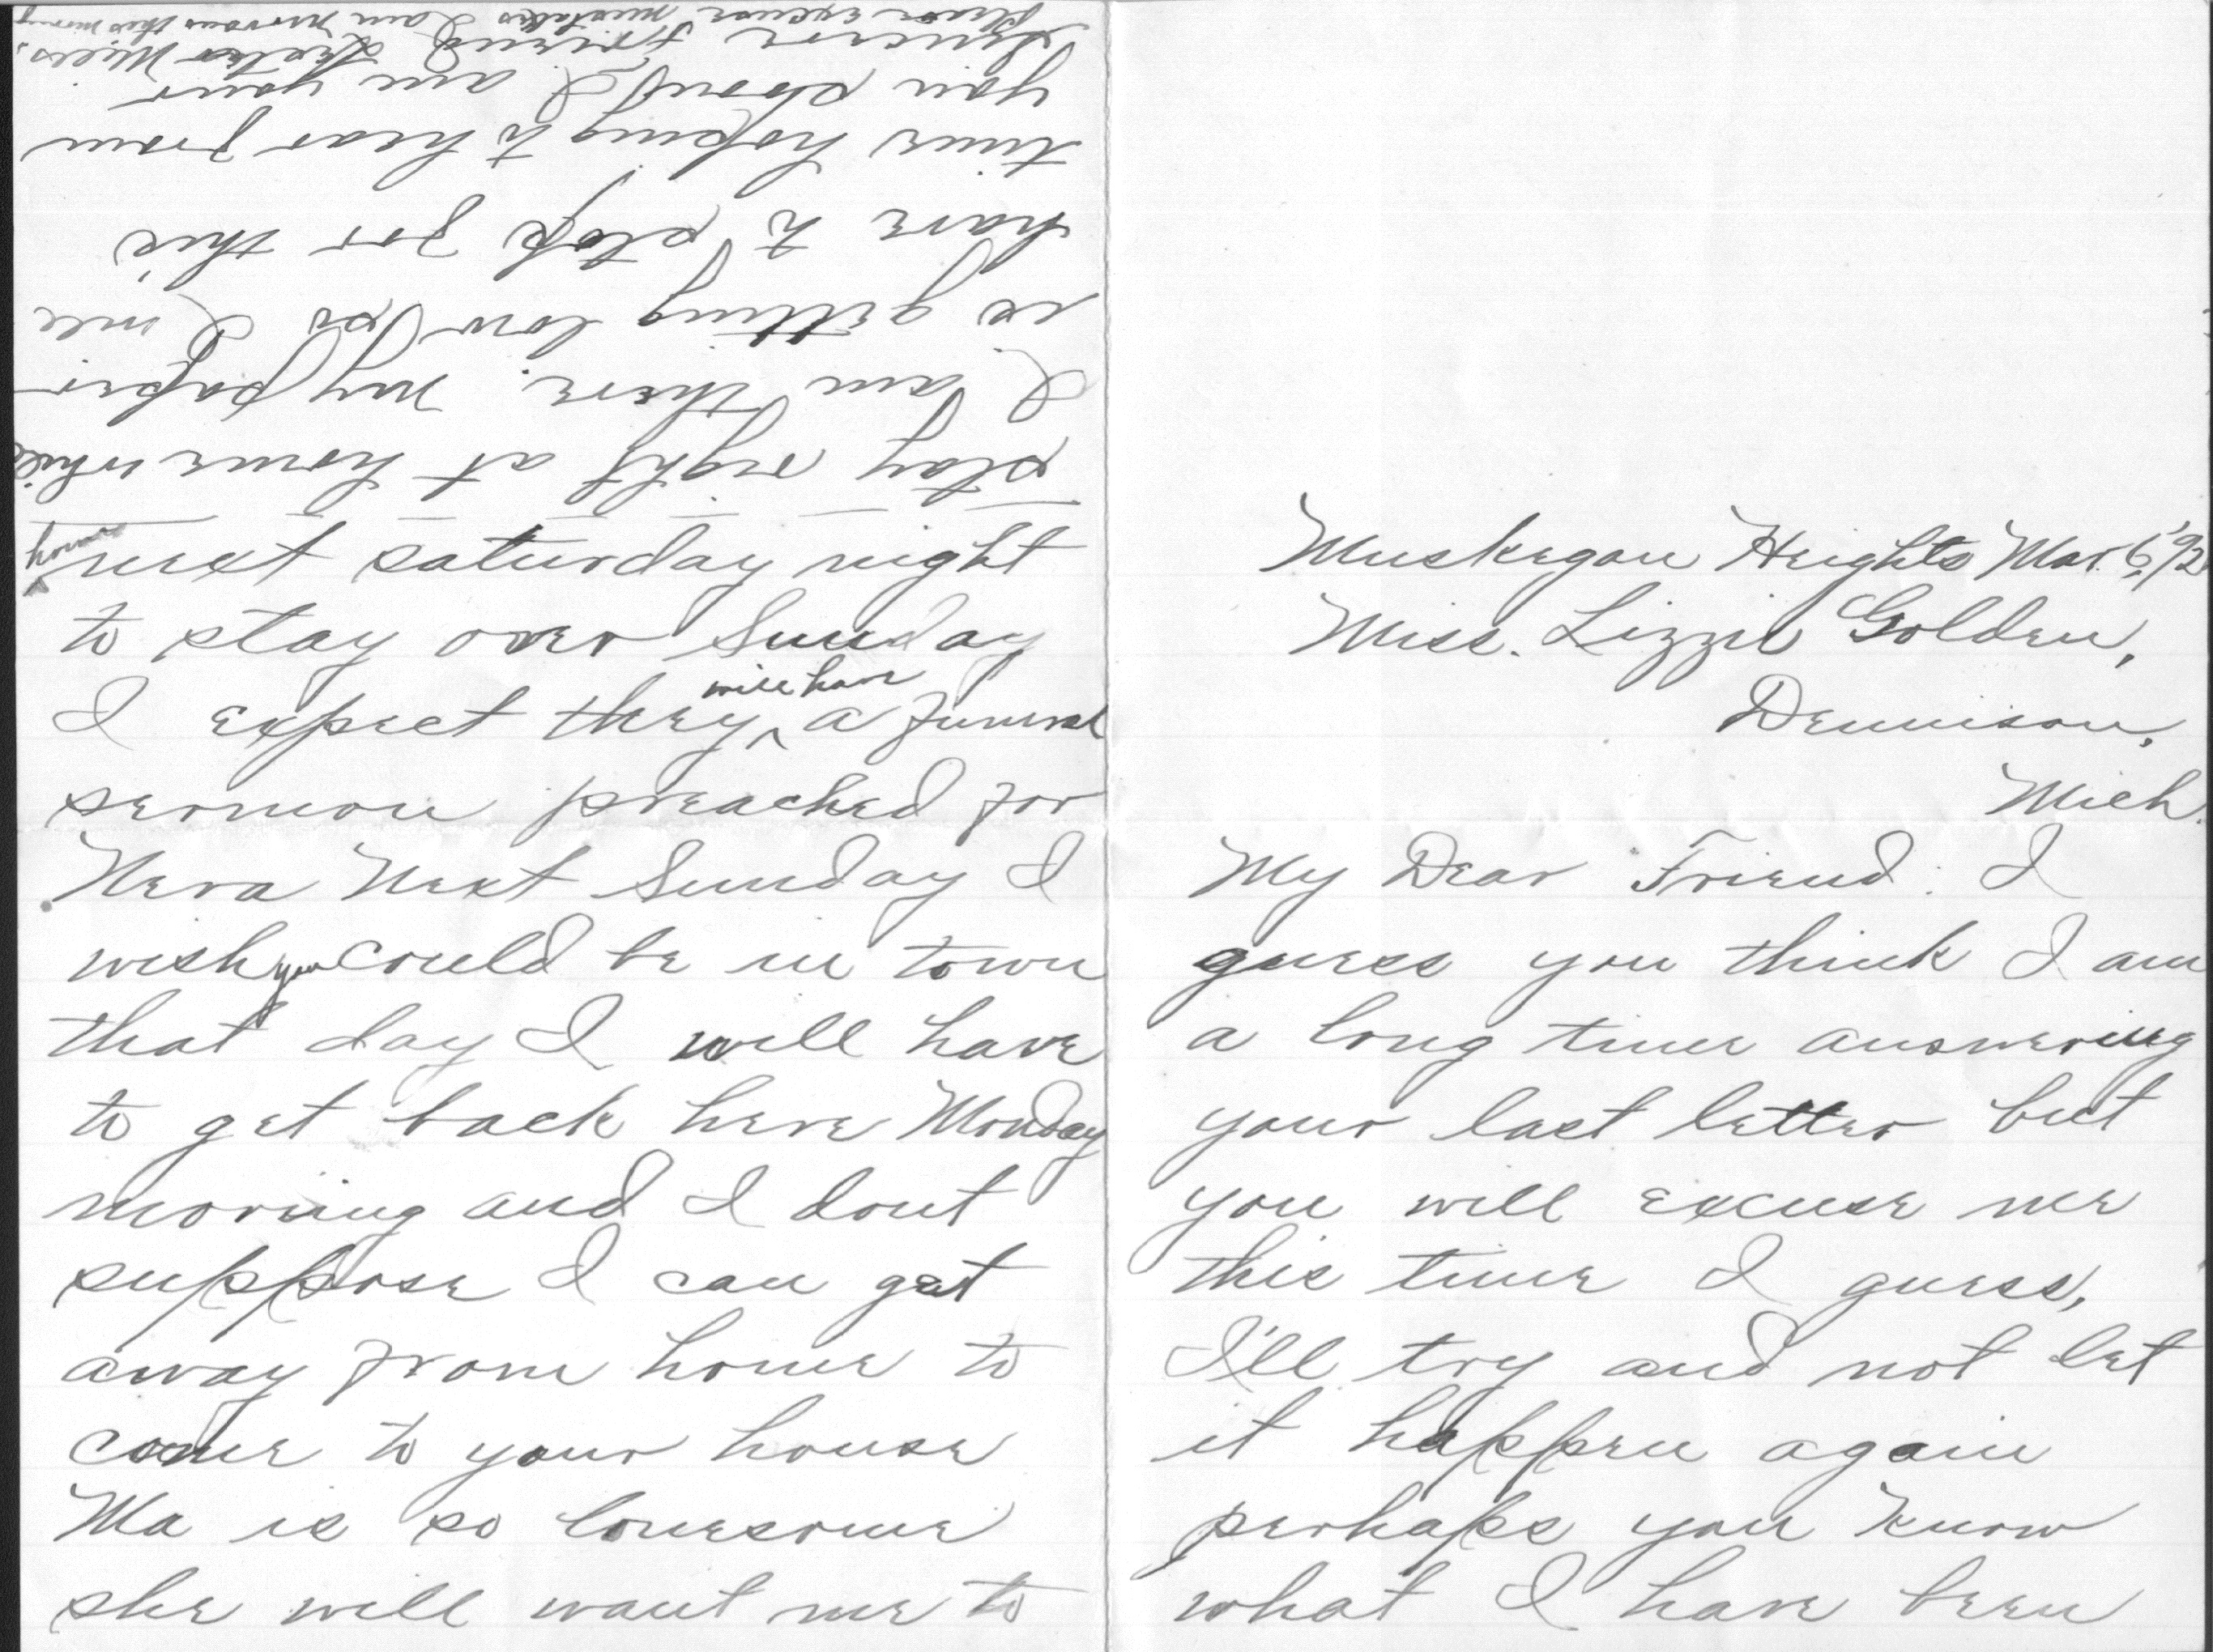 Muskegon Heights Mar. 6, '92
Miss. Lizzie Golden,
Dennison,
Mich.
My Dear Friend: I
guess you think I am
a long time answering
your last letter but
you will excuse me
this time I guess,
I'll try and not let
it happen again
perhaps you know
what I have been
home
next saturday night
to stay over Sunday
will have
I expect they ^ a funeral
sermon preached for
Neva Next Sunday I
wish you could be in town
that day I will have
to get back here Monday
morning and I dont
suppose I can get
away from home to
come to your house
Ma is so lonesome
she will want me to
stay right at home while
I am there. my paper
is getting low so I will
have to stop for this
time hoping to hear from
you soon I am your
sincere Friend Mills.
please excuse mistakes I am nervous this morning